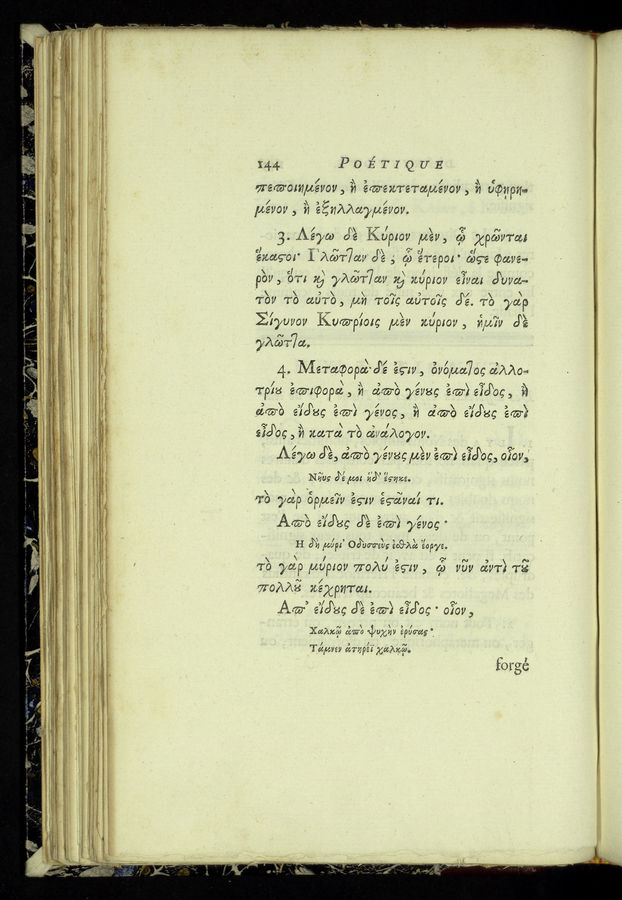 144 POÉTIQUE
πεποιημένον, ἢ ἐπεκτεταμένον, ἢ ὑφῃρη-
μένον, ἢ ἐξηλλαγμένον.
3. Λέγω δὲ Κύριον μὲν, ᾧ χρῶνται
ἕκαϛοι· Γλῶτταν δὲ, ᾧ ἕτεροι· ὥϛε φανε-
ρὸν, ὅτι ϗ γλῶτταν ϗ κύριον εἶναι δυνα-
τὸν τὸ αὐτὸ, μὴ τοῖς αὐτοῖς δέ. τὸ γὰρ
Σίγυνον Κυπρίοις μὲν κύριον, ἡμῖν δὲ
γλῶττα.
4. Μεταφορὰ δέ ἐϛιν, ὀνόματος ἀλλο-
τρίȣ ἐπιφορὰ, ἢ ἀπὸ γένȣς ἐπὶ εἶδος, ἢ
ἀπὸ εἴδȣς ἐπὶ γένος, ἢ ἀπὸ εἴδȣς ἐπὶ
εἶδος, ἢ κατὰ τὸ ἀνάλογον.
Λέγω δὲ, ἀπὸ γένȣς μὲν ἐπὶ εἶδος, οἷον,
Νηῦς δέ μοι ἥδ’ ἕϛηκε.
τὸ γὰρ ὁρμεῖν ἐϛιν ἑϛάναί τι.
Ἀπὸ εἴδȣς δὲ ἐπὶ γένος·
Η δὴ μύρι’ Οδυσσεὺς ἐσθλὰ ἔοργε.
τὸ γὰρ μύριον πολύ ἐϛιν, ᾧ νῦν ἀντὶ τȣ͂
πολλȣ͂ κέχρηται.
Ἀπ’ εἴδȣς δὲ ἐπὶ εἶδος· οἷον,
Χαλκῷ ἀπὸ ψυχὴν ἐρύσας·
Τάμνεν ἀτηρέϊ χαλκῷ.
forgé